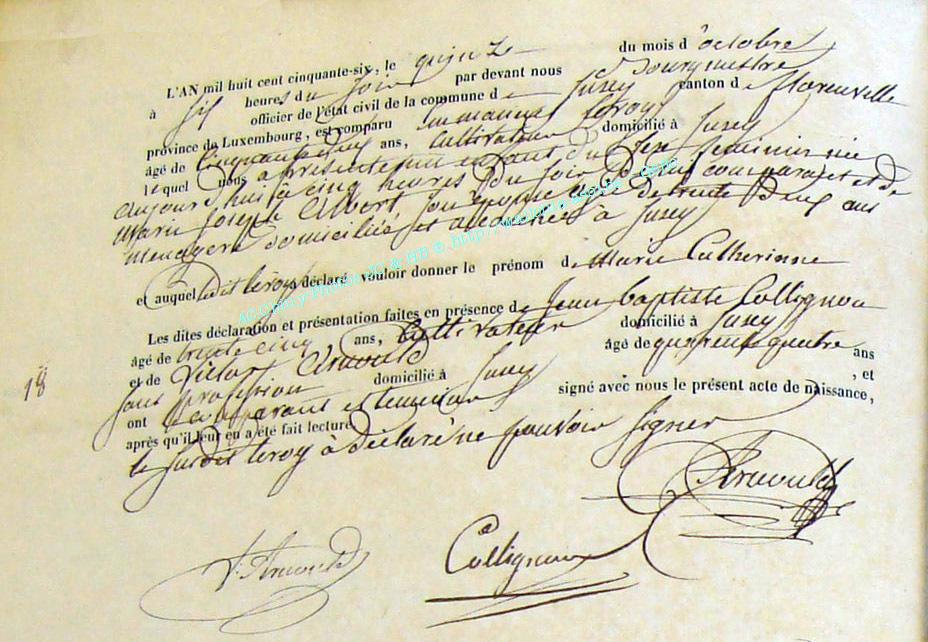 L'AN mil huit cent cinquante-six, le quinze du mois d'octobre
à six heures du soir par devant nous Bourgmestre
officier de l'état civil de la commune d Jusey canton de Florenville
province du Luxembourg, est comparu Emmanuel Leroy
âgé de cinquante ans, cultivateur domicilié à Jusey
lequel nous a présenté un enfant du sexe féminin né
aujourd'hui à cinq heures du soir de lui comparant et de
Marie Joseph Albert son épouse âgée de trente deux ans
ménagère domiciliés et accouchée à Jusey
et auquel ledit leroy a déclaré vouloir donner le prénom de Marie Catherinne
Les dites déclaration et présentation faites en présence de Jean baptiste Collignon
âgé de trente cinq ans, cultivateur domicilié à Jusey
et de Victor Arnould âgé de quarente quatre ans
sans profession domicilié à Jusey , et
ont comparant et temoins signé avec nous le présent acte de naissance,
après qu'il leur en a été fait lecture
le susdit leroy à déclaré ne pouvoir signer
18
Arnould
V. Arnould
Collignon